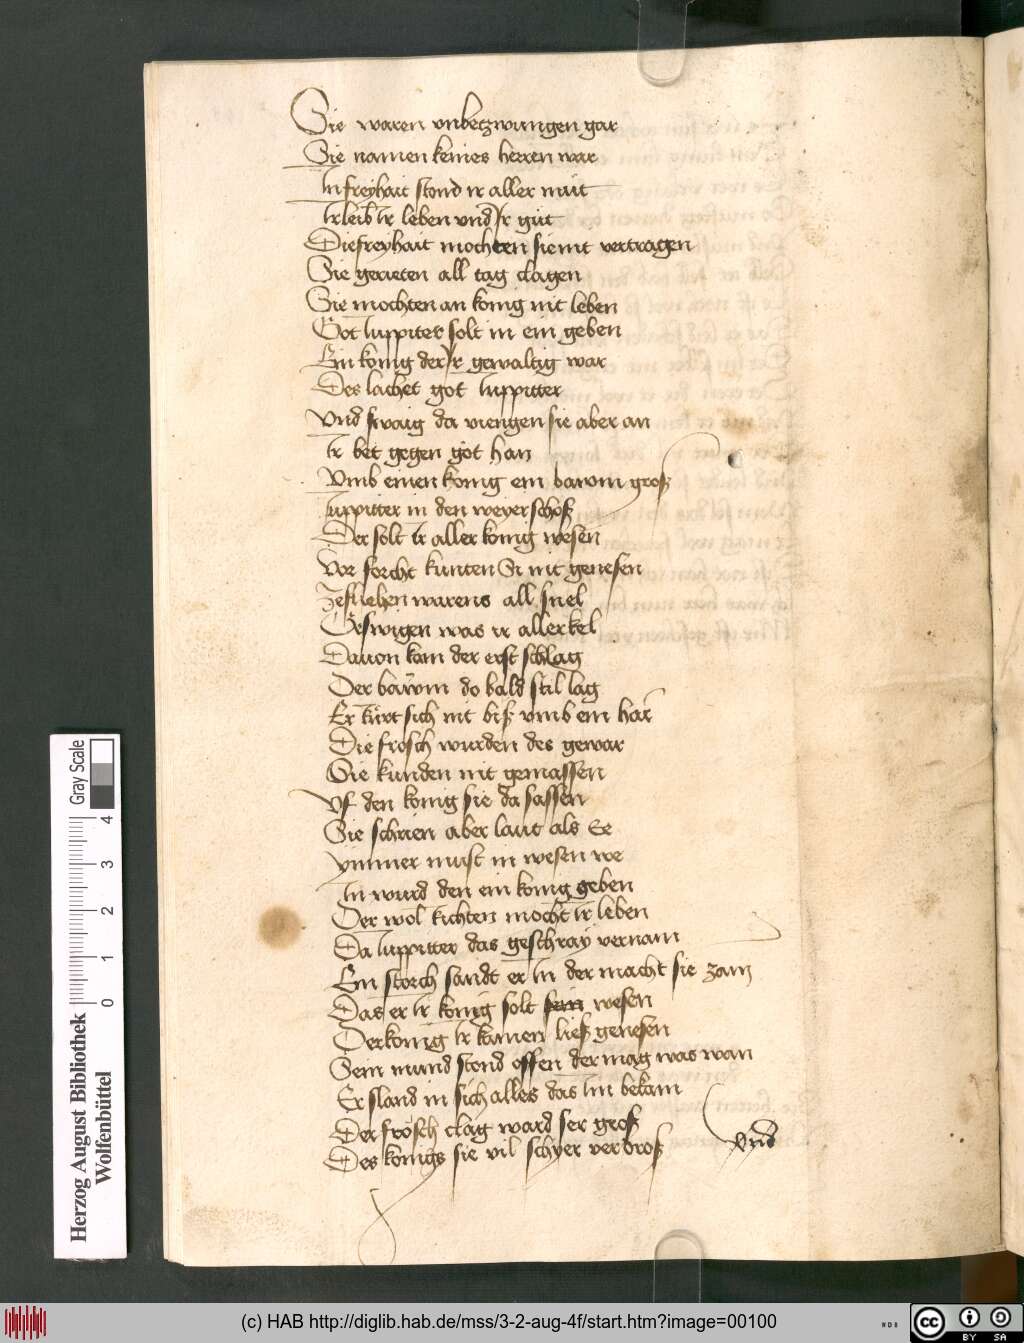 Sie waren vnbetzwungen gar
Sie namen keines herren war
In freyhait stond ir aller muit
Ir leib Ir leben vnd Ir gut
Die freyhait mochten sie nit vertragen
Sie gerieten all tag clagen
Sie mochten an konig nit leben
Got Iuppiter solt in ein geben
Ein konig der Ir gewaltig war
Des lachet got Iuppitter
Vnd swaig da viengen sie aber an
Ir bet gegen got han
Vmb einen konig ein bawm groß
Iuppitter in den weyer schoß
Der solt Ir aller konig wesen
Vor forcht kunten Si nit genesen
Ze fliehen warens all snel
Geswigen was ir aller kel
Dauon kam der erst schlag
Der bawm do bald stil lag
Er kürt sich nit biß vmb ein har
Die frosch wurden des gewar
Sie kunden nit gemassen
Vf den konig sie da sassen
Sie schrien aber laut als Ee
ymmer must in wesen we
In wurd den ein konig geben
Der wol richten mocht ir leben
Da Iuppitter das geschray vernam
Ein storch sandt er In der macht sie zam
Das er Ir konig solt wesen
Der konig Ir kainen ließ genesen
Sein mund stond offen der mag was wan
Er sland in sich alles das Im bekam
Der frosch clag ward ser groß
Des konigs sie vil schyer verdroß
Vnd
Gray Scale
0 1 2 3 4
Herzog August Bibliothek
Wolfenbüttel
(c) HAB http://diglib.hab.de/mss/3-2-aug-4f/start.htm?image=00100
cc BY SA